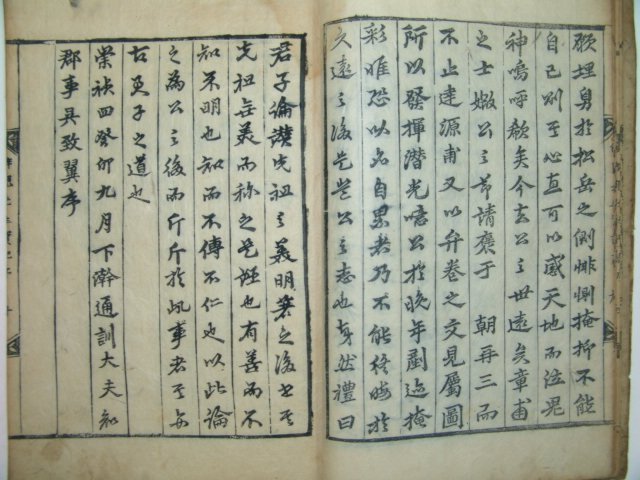 願埋身於松岳之側悱惻掩抑不能
自已則至心直可以感天地而泣鬼
神嗚呼欷矣今去公之世遠矣章甫
之士媺公之節請褒于 朝再三而
不止達源甫又以弁卷之文見屬圖
所以發揮潛光噫公於晩年剷迹掩
彩唯恐以名自累者乃不能終晦於
久遠之後是豈公之志也哉然禮曰
君子論譔先祖之美明著之後世其
先祖無美而稱之是誣也有善而不
知不明也知而不傳不仁也以此論
之爲公之後而斤斤於此事者其亦
古君子之道也
崇禎四癸卯九月下澣通訓大夫知
郡事吳致翼序